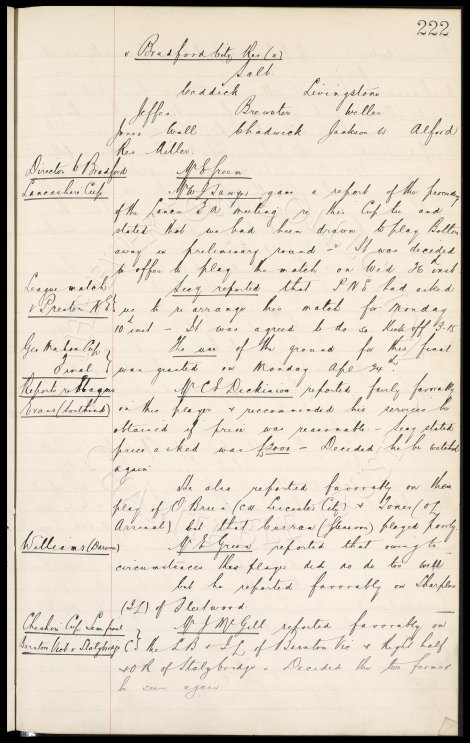 222
v Bradford City Res (a)
Salt
Caddick Livingstone
Jeffes Brewster Weller
Jones Wall Chadwick Jackson W Alford
Res Miller.
Director to Bradford Mr E Green
Lancashire Cup Mr W J Sawyer gave a report of the
of the Lancs F.A. meeting re this Cup tie and
stated that we had been drawn to play Bolton
away in preliminary round - It was decided
to offer to play the match on Wed inst
League match Secy reported that P N E had asked
v Preston N.E. us to re arrange his match for Monday
10th inst - It was agreed to do so Kick off 3.15
Geo Mahon Cup The use of the ground for this final
Final was granted on Monday Apl 24th
Report re Mr C E Dickinson reported fairly favorably
Evans (Southend) on this player & recommended his services be
obtained if price was reasonable. Secy stated
price asked was £2000 - Decided he be watched
again
He also reported favorably on the
play of O'Brien (CH Leicester City) & Jones (OL
Arsenal) but that Curran played poorly
Williams (Darwen) Mr E Green reported that owing to
circumstances this player did no do too well
but he reported favorably on Sharples
(IL) of Fleetwood
Cheshire Cup Semi final Mr J McGill reported favorably on
v Stalybridge C the LB & IL of Vic & Right half
& OR of Stalybridge - Decided the two former
be seen again